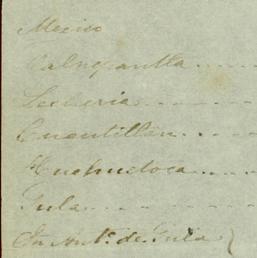 Mexico
Talnepantla . . . .
Lecheria . . . .
Cuautitlan . . . .
Huehuetoca . . . .
Tula . . . .
Sn Anto. de Tula }